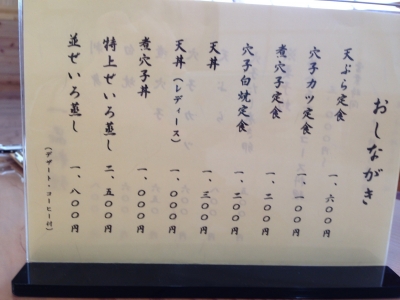 おしながき
天ぷら定食 一、六〇〇円
穴子カツ定食 一、一〇〇円
煮穴子定食 一、二〇〇円
穴子白焼定食 一、二〇〇円
天丼 一、三〇〇円
天丼(レディース) 一、〇〇〇円
煮穴子丼 一、〇〇〇円
特上せいろ蒸し 二、五〇〇円
並せいろ蒸し 一、八〇〇円
(デザート・コーヒー付)